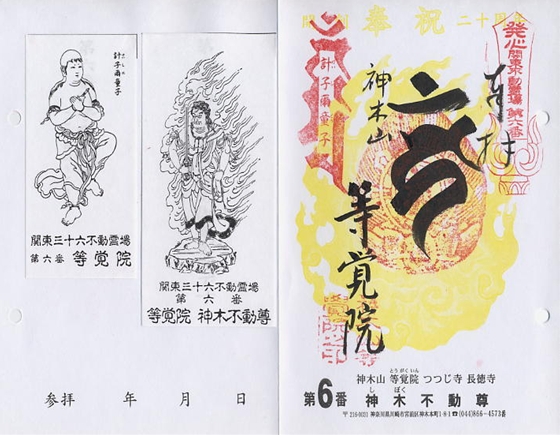 計子爾童子
関東三十六不動霊場
第六番 等覚院
関東三十六不動霊場
第六番
等覚院 神木不動尊
参拝 年 月 日
奉祝
発心 関東不動霊場 第六番
奉拝
計子爾童子
神木山
等覚院
とうがくいん
神木山 等覚院 つつじ寺 長徳寺
しぼく
第6番 神木不動尊
神奈川県川崎市宮前区神木本町 ☎(044)866-4573